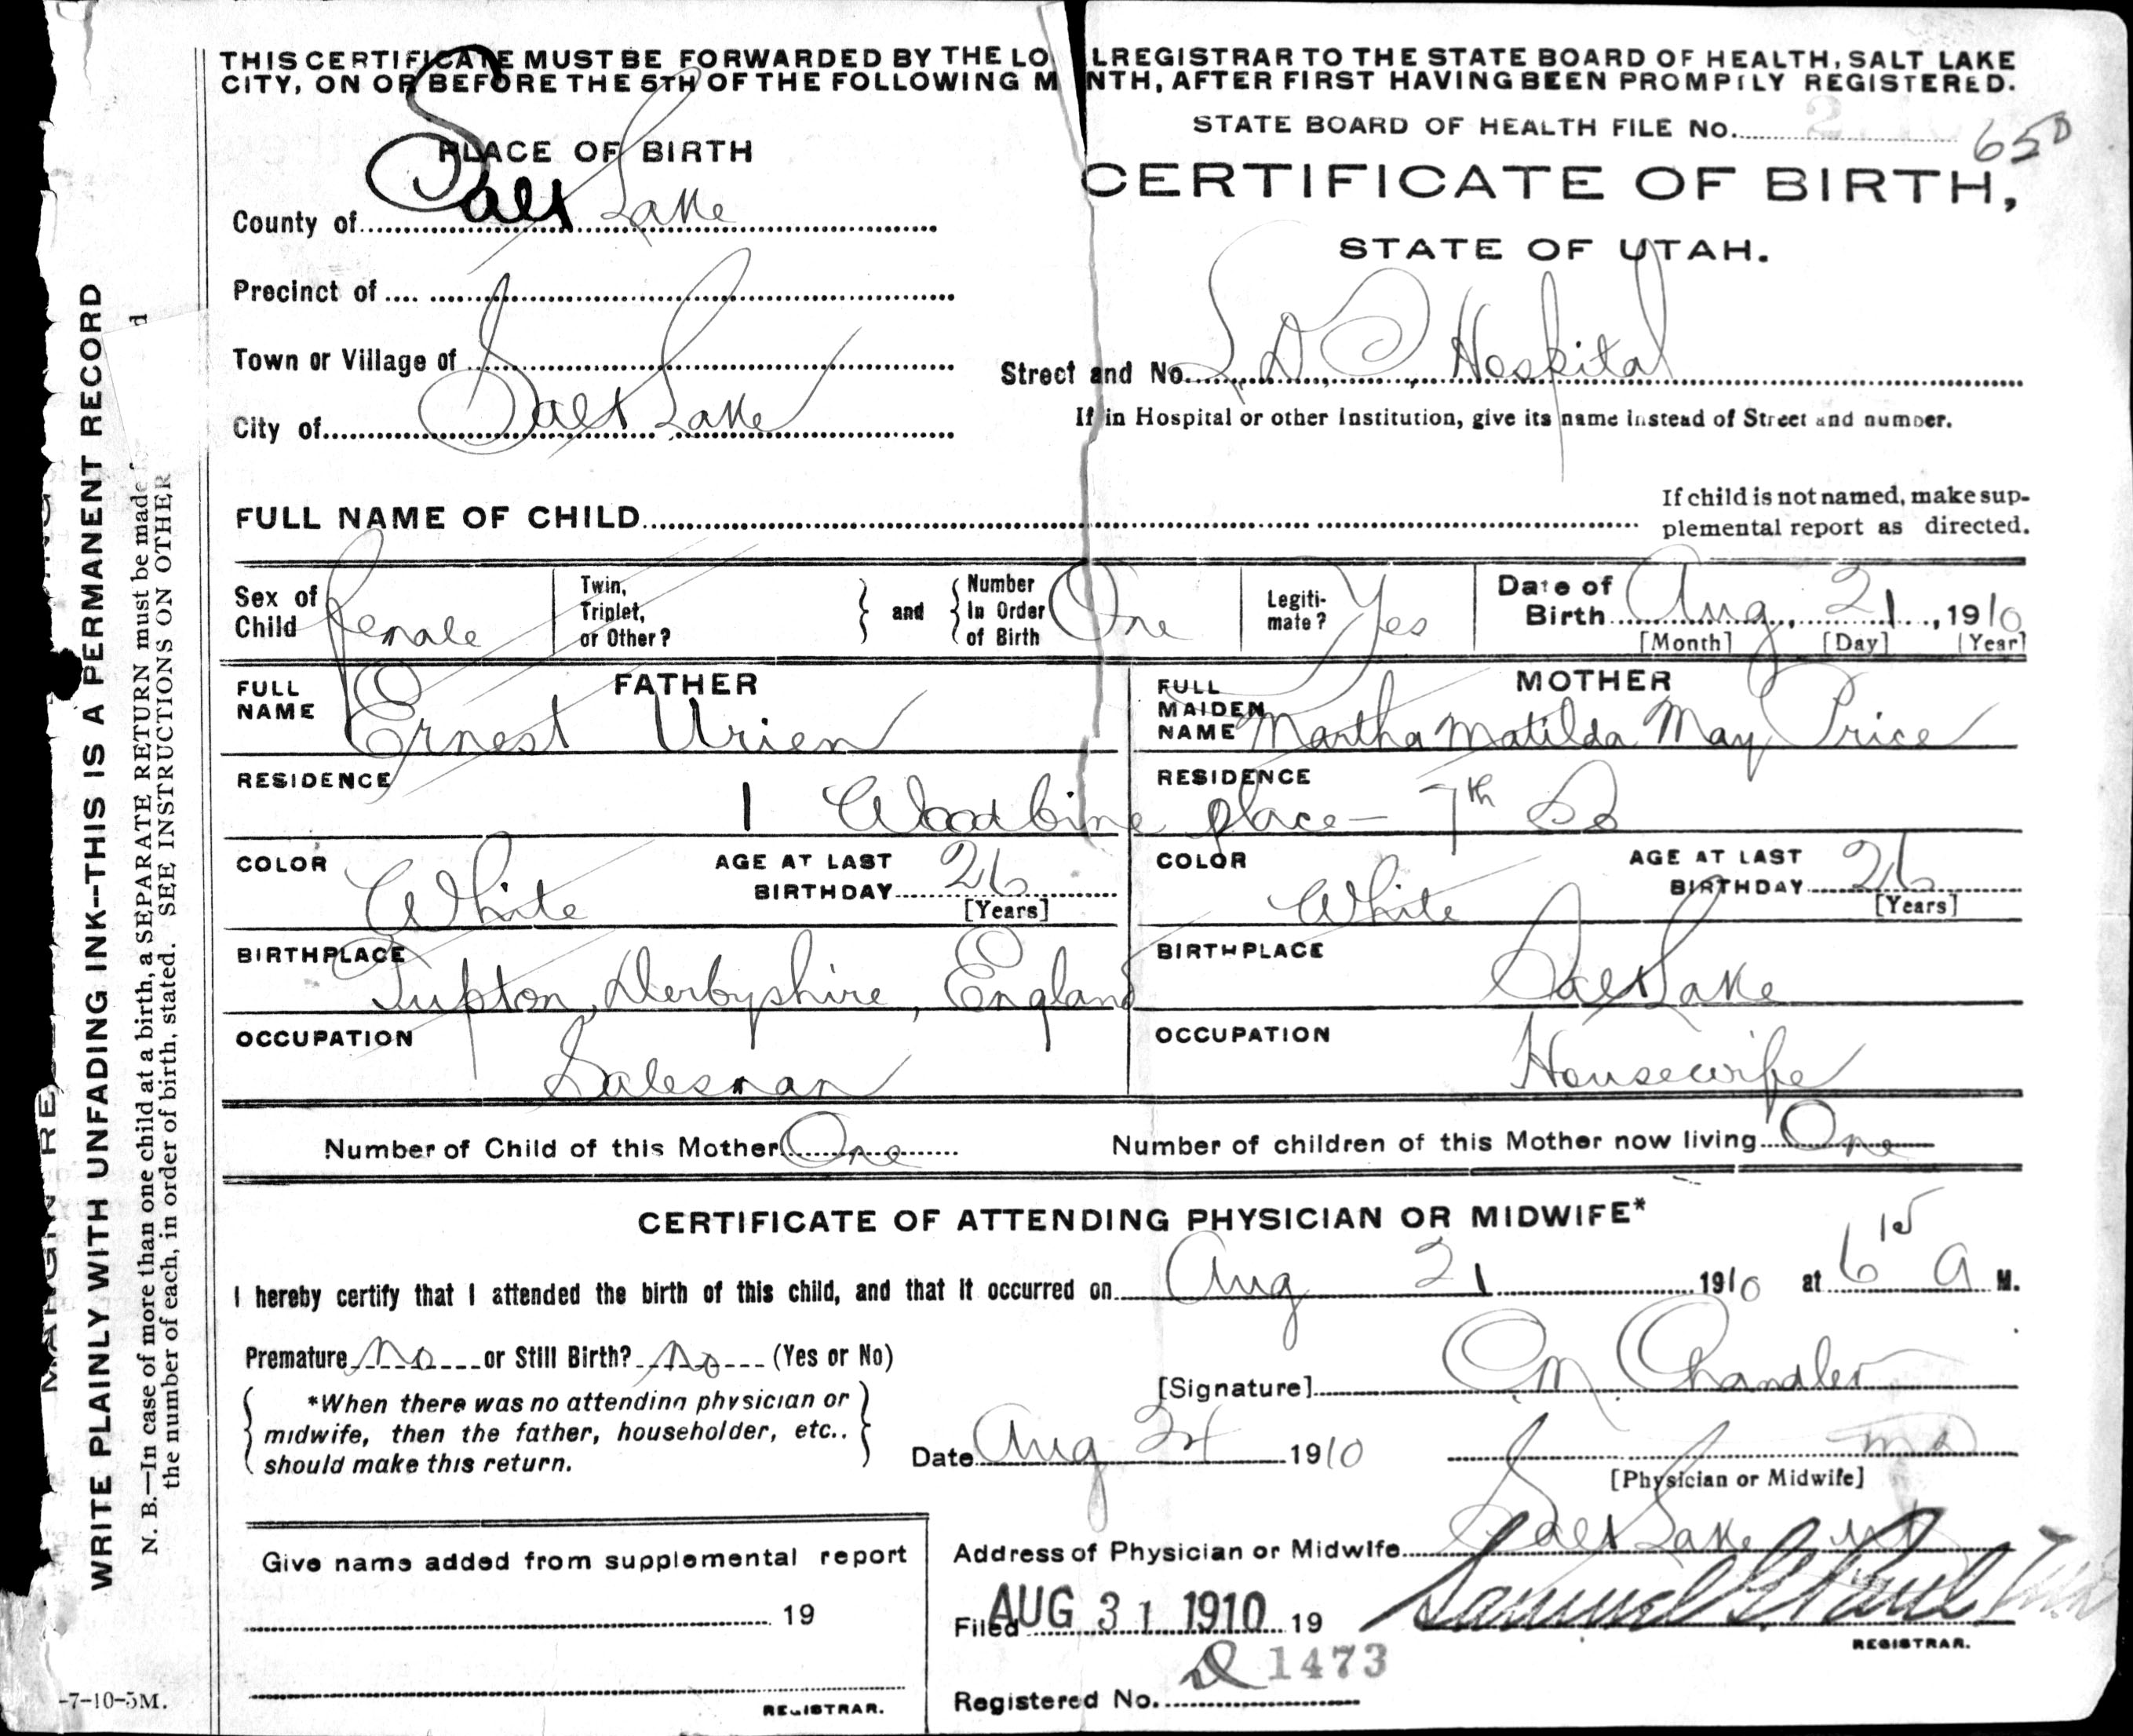 THIS CERTIFICATE MUST BE FORWARDED BY THE LO LREGISTRAR TO THE STATE BOARD OF HEALTH, SALT LAKE
CITY, ON OR BEFORE THE 5TH OF THE FOLLOWING M NTH, AFTER FIRST HAVING BEEN PROMPTLY REGISTERED.
STATE BOARD OF HEALTH FILE No. 2
650
PLACE OF BIRTH
CERTIFICATE OF BIRTH,
County of Salt Lake
STATE OF UTAH.
Precinct of
Town or Village of
Street and No. L.D.S. Hospital
City of Salt Lake
If in Hospital or other Institution, give its name instead of Street and number.
FULL NAME OF CHILD
If child is not named, make sup-
plemental report as directed.
Sex of Child Female
Twin, Triplet, or Other?
and
Number In Order of Birth One
Legiti-mate? Yes
Date of Birth Aug 21, 1910
[Month] [Day] [Year]
FATHER
FULL NAME Ernest Urien
MOTHER
FULL MAIDEN NAME Martha Matilda May Price
RESIDENCE RESIDENCE
1 Woodbine place - 7th So
COLOR White AGE AT LAST BIRTHDAY 26 [Years]
COLOR White AGE AT LAST BIRTHDAY 26 [Years]
BIRTHPLACE Tupton, Derbyshire, England
BIRTHPLACE Salt Lake
OCCUPATION Salesman
OCCUPATION Housewife
Number of Child of this Mother One Number of children of this Mother now living One
CERTIFICATE OF ATTENDING PHYSICIAN OR MIDWIFE*
I hereby certify that I attended the birth of this child, and that it occurred on Aug 21 1910 at 6 15 a M.
Premature No or Still Birth? No (Yes or No)
[Signature] C. M. Chandler
*When there was no attending physician or
midwife, then the father, householder, etc..
should make this return.
Date Aug 24 1910 MD
[Physician or Midwife]
Address of Physician or Midwife Salt Lake
Give name added from supplemental report
19
REGISTRAR.
Filed AUG 31 1910 19 Samuel G Paul
REGISTRAR.
1473
Registered No.
-7-10-5M.
WRITE PLAINLY WITH UNFADING INK--THIS IS A PERMANENT RECORD
N. B.—In case of more than one child at a birth, a SEPARATE RETURN must be made
the number of each, in order of birth, stated. SEE INSTRUCTIONS ON OTHER
MARGIN RE